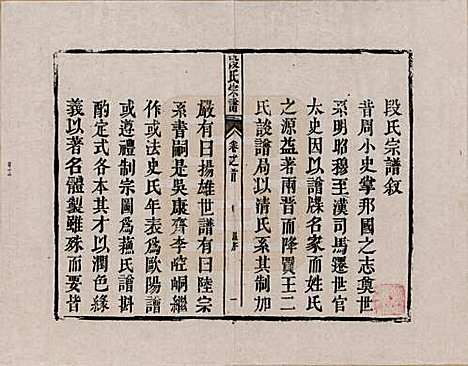 段氏宗譜敘
昔周小史掌邦國之志奠世
系明昭穆王漢司馬遷世官
太史因以譜牒名家而姓氏
之源益著兩晉而降賈王二
氏設譜局以清氏系其制加
段氏宗譜
卷之首
一
嚴有曰揚雄世譜有曰陸宗
系書嗣是吳康齊李崆峒繼
作或法史氏年表為歐陽譜
或遵禮制宗圖為蘓氏譜斟
酌定式各本其才以潤色緣
義以著名體製雖殊而要皆